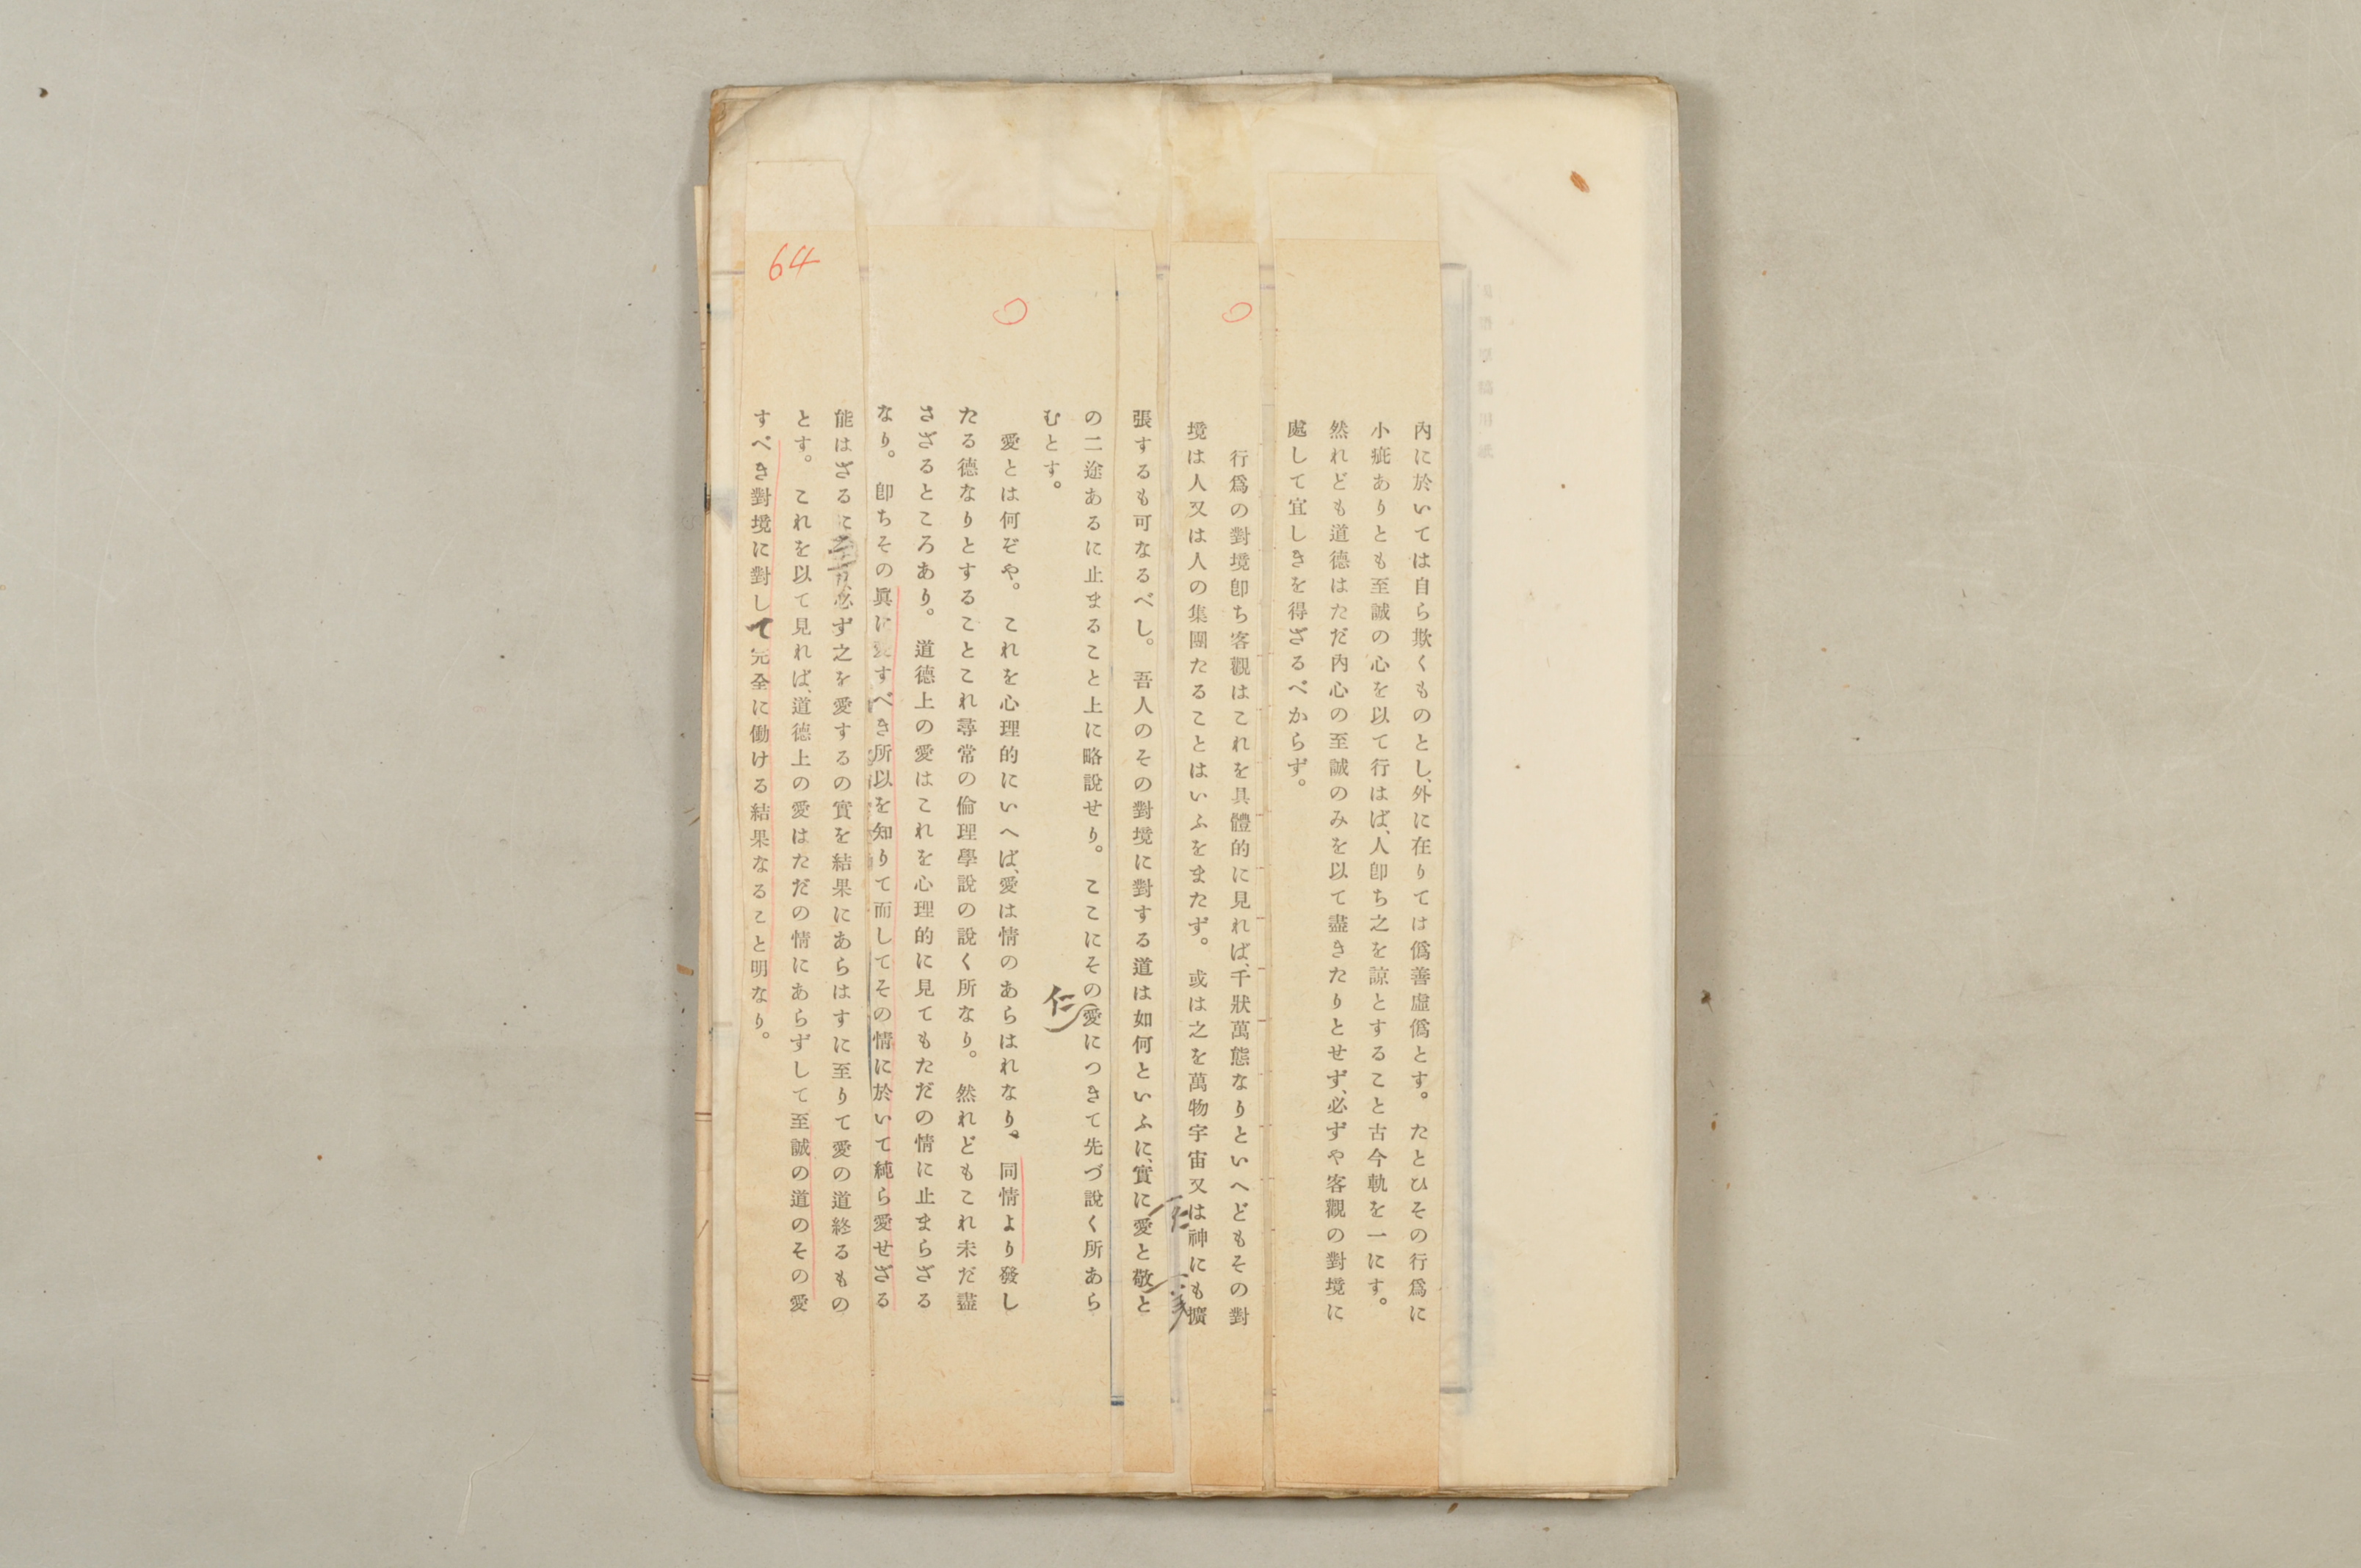 內に於いては自ら欺くものとし、外に在りては僞善虛僞とす。たとひその行爲に
小疵ありとも至誠の心を以て行はば、人卽ち之を諒とすること古今軌を一にす。
然れども道德はただ內心の至誠のみを以て盡きたりとせず、必ずや客觀の對境に
處して宜しきを得ざるべからず。
行爲の對境卽ち客觀はこれを具體的に見れば、千狀萬態なりといへどもその對
境は人又は人の集團たることはいふをまたず。或は之を萬物宇宙又は神にも擴
張するも可なるべし。吾人のその對境に對する道は如何といふに、實に愛と敬と
仁
義
の二途あるに止まること上に略說せり。ここにその愛につきて先づ說く所あら
仁
むとす。
愛とは何ぞや。これを心理的にいへば、愛は情のあらはれなり、同情より發し
たる德なりとすることこれ尋常の倫理學說の說く所なり。然れどもこれ未だ盡
さざるところあり。道德上の愛はこれを心理的に見てもただの情に止まらざる
なり。卽ちその眞に愛すべき所以を知りて而してその情に於いて純ら愛せざる
能はざるに必ず之を愛するの實を結果にあらはすに至りて愛の道終るもの
とす。これを以て見れば、道德上の愛はただの情にあらずして至誠の道のその愛
すべき對境に對して完全に働ける結果なること明なり。
64